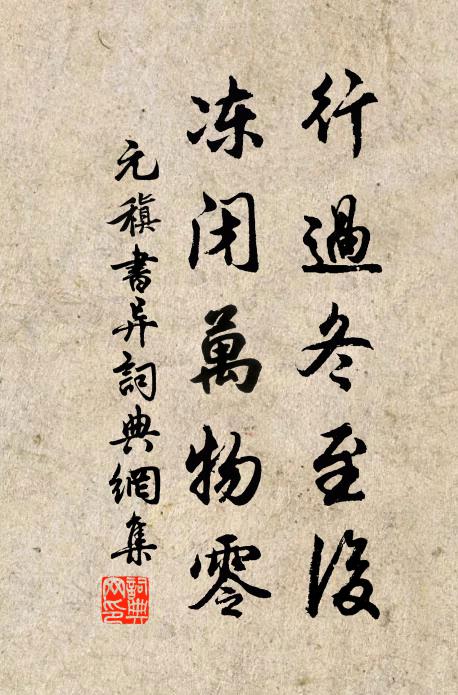 行過冬至後
凍闭萬物零
元稹書异詞典網集
詞典
网印